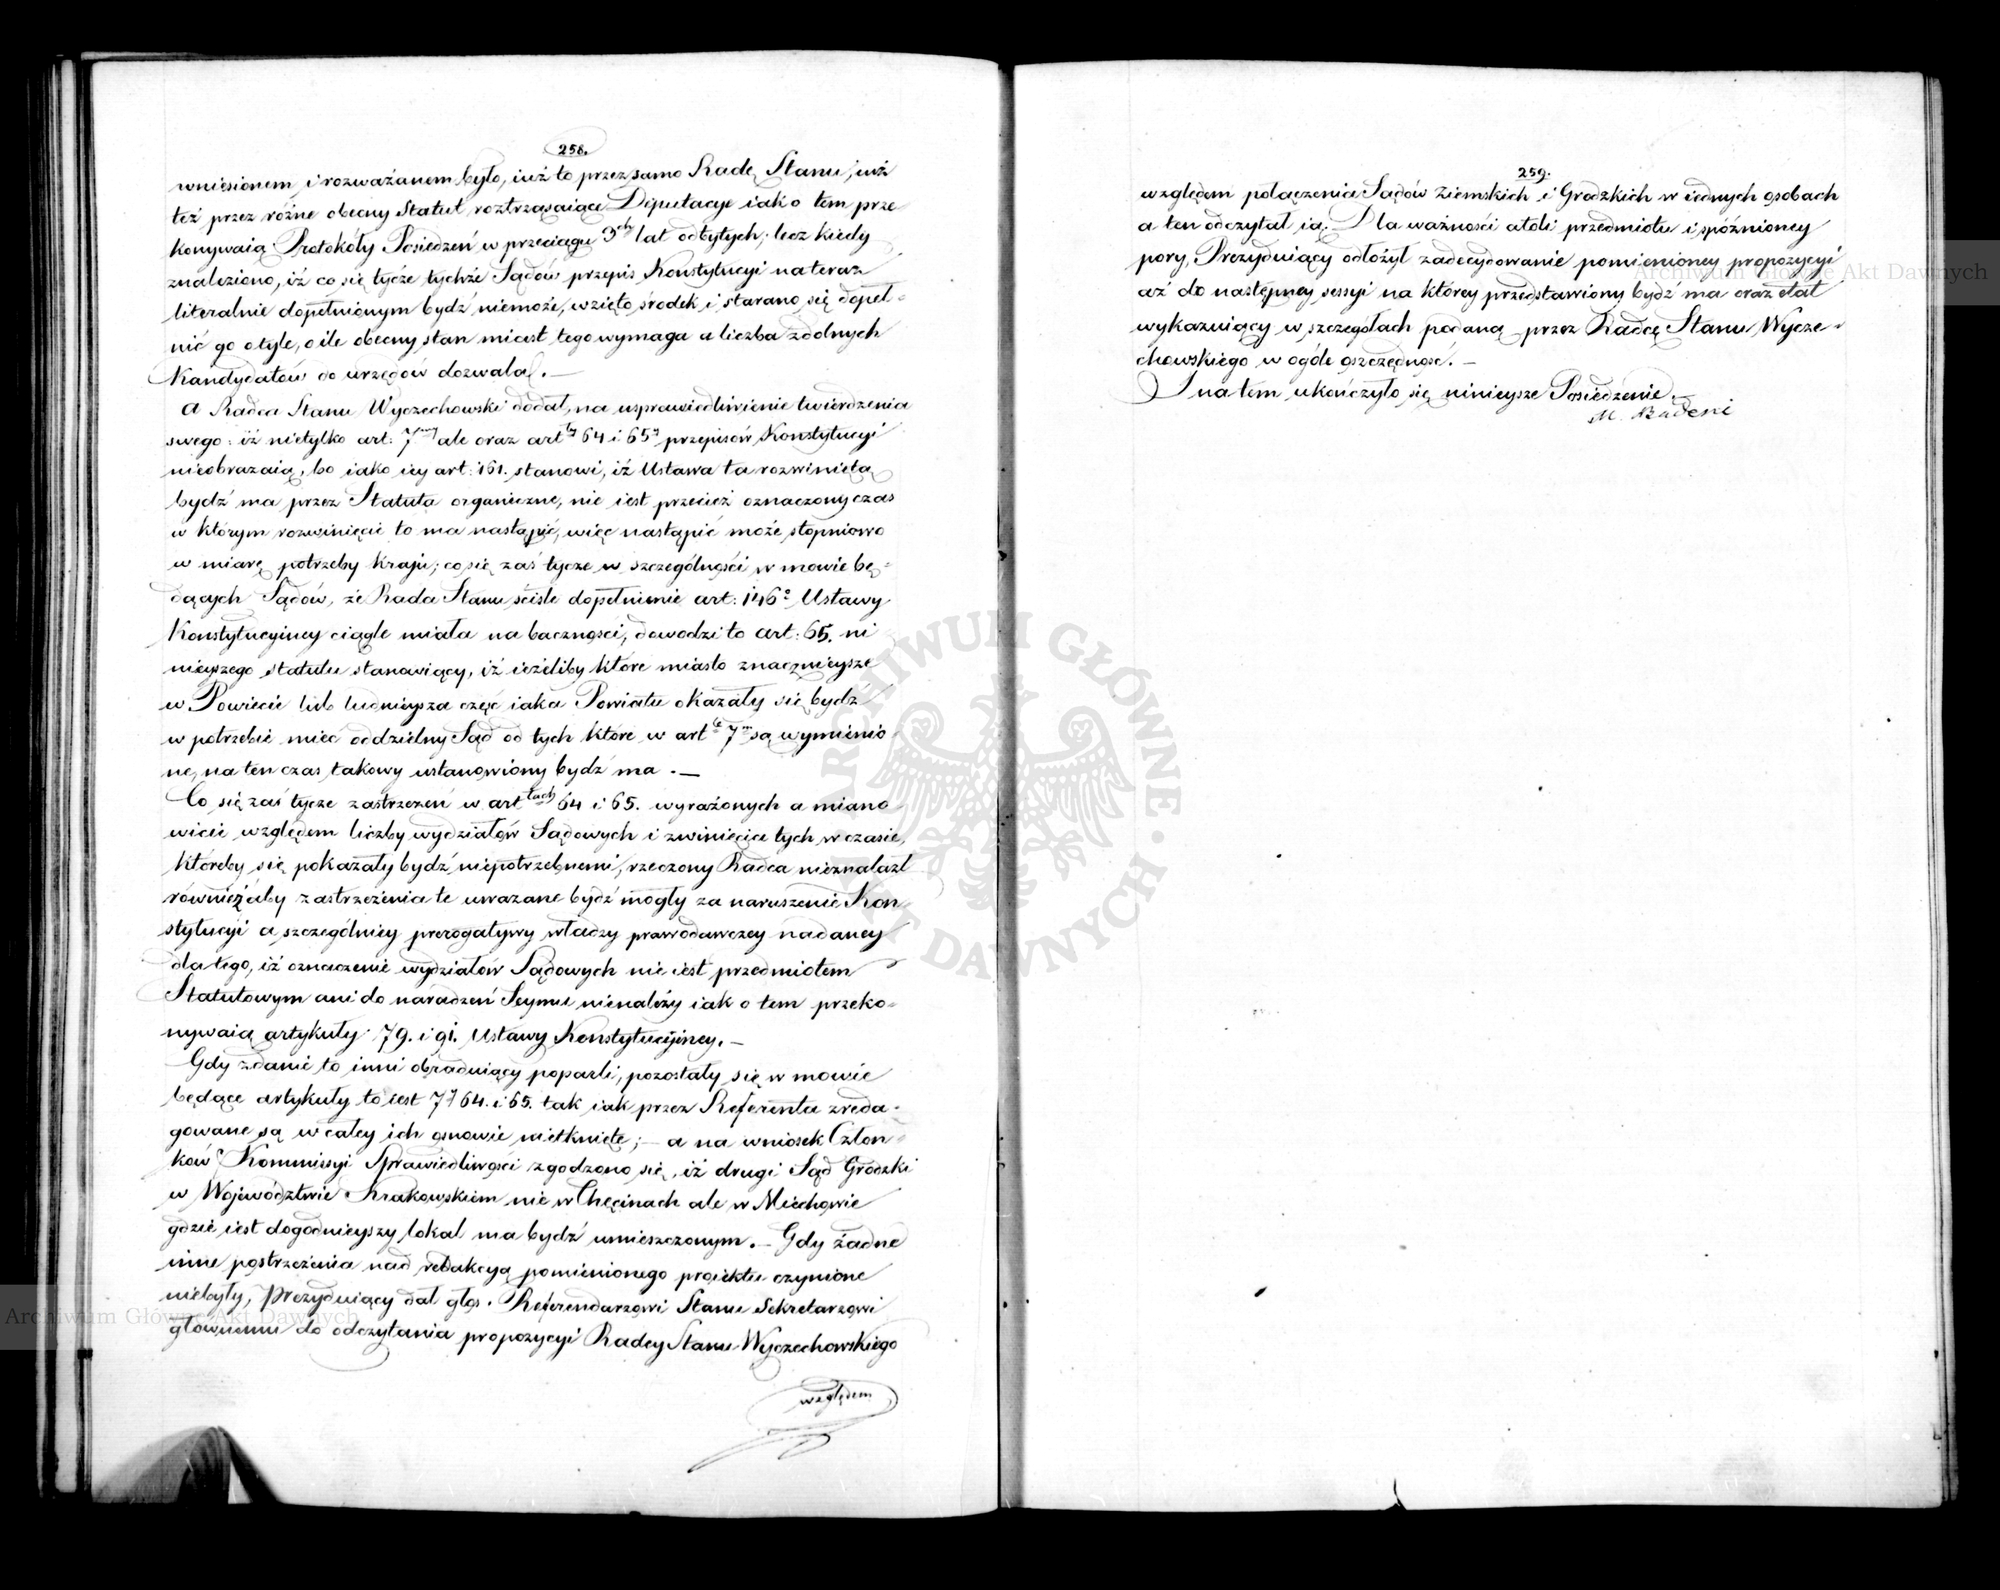 258.
wniesionem i rozważanem było, iuż to przez samo Radę Stanu, iuż
też przez różne obecny Statut roztrząsaiące Deputacye iak o tem prze
konywaią Protokóły Posiedzeń w przeciągu 3ch lat odbytych; lecz kiedy
znaleziono, iż co się tycze tychże Sądów przepis Konstytucyi na teraz
literalnie dopełnionym bydź niemoże, wzięto środek i starano się dopeł-
nić go o tyle, o ile obecny stan miast tego wymaga a liczba zdolnych
Kandydatów do urzędów dozwala. —
a Radca Stanu Wyczechowski dodał, na usprawiedliwienie twierdzenia
swego: iż nietylko art: 7my ale oraz artły 64 i 65y przepisów Konstytucyi
nieobrażaią, bo iako iey art: 161. stanowi, iż Ustawa ta rozwiniętą
bydź ma przez Statuta organiczne, nie iest przecież oznaczony czas
w którym rozwinięcie to ma nastąpić, więc nastąpić może stopniowo
w miarę potrzeby Kraju; co się zaś tycze w szczególności w mowie bę-
dących Sądów, że Rada Stanu ściśle dopełnienie art: 146o Ustawy
Konstytucyiney ciągle miała na baczności, dowodzi to art: 65. ni
nieyszego statutu stanowiący, iż ieżeliby które miasto znacznieysze
w Powiecie lub ludnieysza część iaka Powiatu okazały się bydź
w potrzebie mieć oddzielny Sąd od tych które w artle 7m są wymienio
ne, na ten czas takowy ustanowiony bydź ma. —
Co się zaś tycze zastrzeżeń w arttach 64 i 65. wyrażonych a miano
wicie względem liczby wydziałów Sądowych i zwinięcia tych w czasie,
któreby się pokazały bydź niepotrzebnemi, rzeczony Radca nieznalazł
również aby zastrzeżenia te uważane bydź mogły za naruszenie Kon
stytucyi a szczególniey prerogatywy władzy prawodawczey nadaney
dla tego, iż oznaczenie wydziałów Sądowych nie iest przedmiotem
Statutowym ani do naradzeń Seymu nienależy iak o tem przeko-
nywaią artykuły 79. i 91. Ustawy Konstytucyiney. —
Gdy zdanie to inni obraduiący poparli, pozostały się w mowie
będące artykuły to iest 7y 64. i 65. tak iak przez Referenta zreda-
gowane są w całey ich osnowie nietknięte; — a na wniosek Człon-
ków Kommissyi Sprawiedliwości zgodzono się, iż drugi Sąd Grodzki
w Województwie Krakowskiem nie w Chęcinach ale w Miechowie
gdzie iest dogodnieyszy lokal ma bydź umieszczonym. — Gdy żadne
inne postrzeżenia nad redakcyą pomienionego proiektu czynione
niebyły, Prezyduiący dał głos. Referendarzowi Stanu Sekretarzowi
głównemu do odczytania propozycyi Radcy Stanu Wyczechowskiego
względem
259.
względem połączenia Sądów Ziemskich i Grodzkich w iednych osobach
a ten odczytał ią. Dla ważności atoli przedmiotu i spóźnioney
pory, Prezyduiący odłożył zadecydowanie pomienioney propozycyi
aż do następney sessyi na którey przedstawiony bydź ma oraz etat
wykazuiący w szczegółach podaną przez Radcę Stanu Wycze-
chowskiego w ogóle oszczędność. —
I na tem ukończyło się ninieysze Posiedzenie.
M. Badeni
ARCHIWUM GŁÓWNE AKT DAWNYCH
Archiwum Główne Akt Dawnych
Archiwum Główne Akt Dawnych